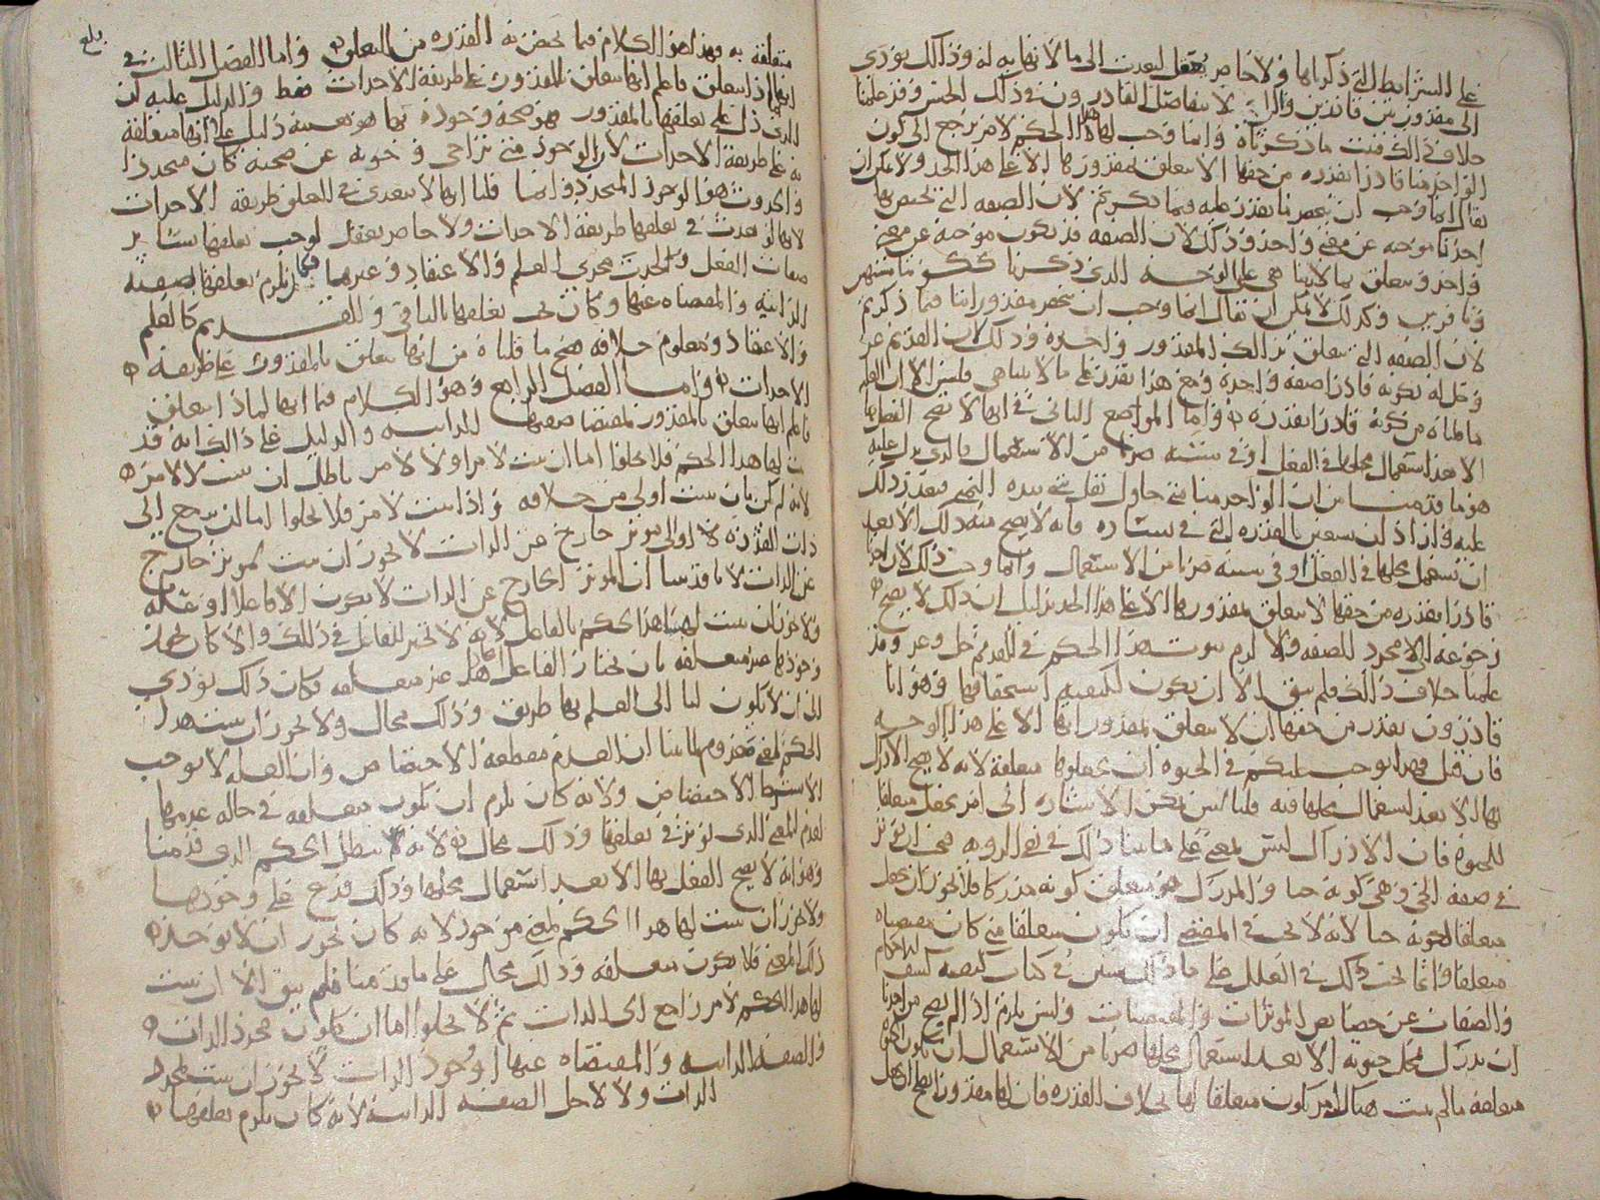 على الشرائط التي ذكرناها ولا حاصر يعقل لتعدت إلى ما لا نهاية له وذلك يؤدي
إلى مقدور بين قادرين وإلى أن لا يتفاضل القادرون وفي ذلك الجنس وقد علمنا
خلاف ذلك فثبت ما ذكرناه وإنما وجب لها هذا الحكم لأمر يرجع إلى كون
الواحد منا قادرا بقدرة من حقها ألا تتعلق بمقدورها إلا على هذا الحد ولا يمكن أن
يقال إنما وجب أن ينحصر ما يقدر عليه فيما ذكرتم لأن الصفة التي يختص بها
أحدنا موجبة عن معنى واحد وذلك لأن الصفة قد تكون موجبة عن معنى
واحد وتتعلق بما لا يتناهى على الوجه الذي ذكرنا ككوننا مشتهين
ونافرين وكذلك لا يمكن أن يقال إنما وجب أن ينحصر مقدوراتنا فيما ذكرتم
لأن الصفة التي تتعلق بذلك المقدور واحدة وذلك لأن القديم عز
وجل له بكونه قادرا صفة واحدة ومع هذا يقدر على ما لا يتناهى فليس إلا أن العلم
ما قلناه من كونه قادرا بقدرة وأما الموضع الثاني في أنها لا يصح الفعل بها
إلا بعد استعمال محلها في الفعل أو في سببه ضربا من الاستعمال فالذي يدل عليه
هو ما قدمنا من أن الواحد منا متى حاول نقل شيء بيده اليمنى فتعذر ذلك
عليه فإن أراد أن يستعين بالقدرة التي في يساره فإنه لا يصح منه ذلك إلا بعد
أن يستعمل محلها في الفعل أو في سببه ضربا من الاستعمال وإنما وجب ذلك لأن أحدنا
قادر بقدرة من حقها لا تتعلق بمقدورها إلا على هذا الحد بدليل أن ذلك لا يصح
رجوعه إلى مجرد الصفة وإلا لزم ثبوت هذا الحكم في القديم جل وعز وقد
علمنا خلاف ذلك فلم يبق إلا أن يكون لكيفية استحقاقها وهو أنا
قادرون بقدر من حقها أن لا تتعلق بمقدوراتها إلا على هذا الوجه
فإن قيل فهذا يوجب عليكم في الحيوة أن تجعلوها متعلقة لأنه لا يصح الإدراك
بها إلا بعد استعمال محلها فيه قلنا ليس يمكن الإشارة إلى أمر يجعل متعلقا
للحيوة فإن الإدراك ليس بمعنى على ما بينا ذلك في نفي الرؤية
في صفة الحي وهي كونه حيا والمدرك هو متعلق كونه مدركا فلا يجوز أن يجعل
متعلقا لكونه حيا لأنه لا يجب في المقتضي أن يكون متعلقا متى كان مقتضاه
متعلقا وإنما يجب ذلك في العلل على ما ذلك مبين في كتاب كيفية كشف الأحكام
والصفات عن خصائص المؤثرات والمقتضيات وليس يلزم إذا لم يصح من أحدنا
أن يدرك بمحل حيوته إلا بعد استعمال محلها ضربا من الاستعمال أن تكون الحيوة
متعلقة ما لم يثبت هناك أمر يكون متعلقا لها بخلاف القدرة فإن لها مقدورا يصح أن يجعل
بلغ
متعلقة به فهذا هو الكلام فيما يختص به القدرة من التعلق وأما الفصل الثالث في
أنها كيف تتعلق فاعلم أنها تتعلق بالمقدور على طريقة الإحداث فقط والدليل عليه أن
الذي دل على تعلقها بالمقدور هو صحة وجوده بها هو بعينه دليل على أنها متعلقة
به على طريقة الإحداث لأن الوجود متى تراخى وجوبه عن صحته كان متجددا
والحدوث هو الوجود المتجدد وإنما قلنا إنها لا تتعدى في التعلق طريقة الإحداث
لأنها لو تعدت في تعلقها طريقة الإحداث ولا حاصر يعقل لوجب تعلقها بسائر
صفات الفعل ولجرت مجرى العلم والاعتقاد وغيرهما فكان يلزم تعلقها بالصفة
الذاتية والمقتضاة عنها وكان يجب تعلقها بالباقي والقديم كالعلم
والاعتقاد ومعلوم خلافه فصح ما قلناه من أنها تتعلق بالمقدور على طريقة
الإحداث وأما الفصل الرابع وهو الكلام فيما أنها لماذا تتعلق
فاعلم أنها تتعلق بالمقدور لمقتضى صفتها الذاتية والدليل على ذلك أنه قد
ثبت لها هذا الحكم فلا يخلو إما أن يثبت لأمر أو لا لأمر باطل أن يثبت لا لأمر
لأنه لم يكن بأن يثبت أولى من خلافه وإذا ثبت لأمر فلا يخلو إما أن يرجع إلى
ذات القدرة أو إلى مؤثر خارج عن الذات لا يجوز أن يثبت لمؤثر خارج
عن الذات لأنا قد بينا أن المؤثر الخارج عن الذات لا يكون إلا فاعلا أو علة
ولا يجوز أن يثبت لها هذا الحكم بالفاعل لأنه لا تخير للفاعل في ذلك وإلا كان يجوز
وجودها غير متعلقة بأن يختار الفاعل جعلها غير متعلقة فكان ذلك يؤدي
إلى أن لا يكون لنا إلى العلم بها طريق وذلك محال ولا يجوز أن يثبت هذا
الحكم لمعنى معدوم لما بينا أن العدم مقطعة الاختصاص وأن العلة لا توجب
إلا بشرط الاختصاص ولأنه كان يلزم أن تكون متعلقة في حالة عدمها
لعدم المعنى الذي يؤثر في تعلقها وذلك محال لأنه يبطل الحكم الذي قدمنا
وهو أنه لا يصح الفعل بها إلا بعد استعمال محلها وذلك فرع على وجودها
ولا يجوز أن يثبت لها هذا الحكم لمعنى موجود لأنه كان يجوز أن لا يوجد
ذلك المعنى فلا تكون متعلقة وذلك محال على ما قدمنا فلم يبق إلا أن يثبت
لها هذا الحكم لأمر راجع إلى الذات ثم لا يخلو إما أن يكون مجرد الذات
والصفة الذاتية والمقتضاة عنها أو وجود الذات لا يجوز أن يثبت لمجرد
الذات ولا لأجل الصفة الذاتية لأنه كان يلزم تعلقها